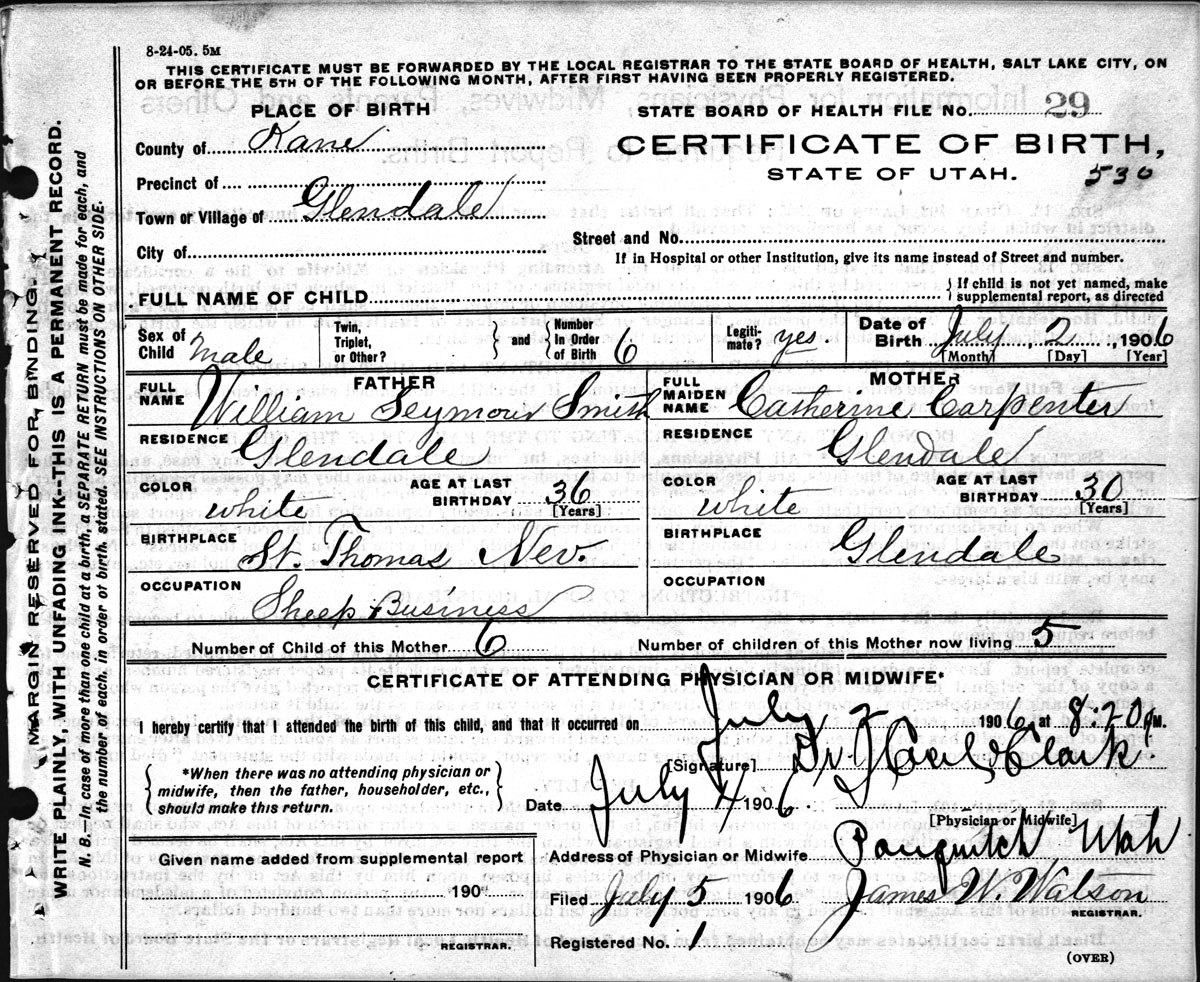 8-24-05. 5M
THIS CERTIFICATE MUST BE FORWARDED BY THE LOCAL REGISTRAR TO THE STATE BOARD OF HEALTH, SALT LAKE CITY, ON
OR BEFORE THE 5TH OF THE FOLLOWING MONTH, AFTER FIRST HAVING BEEN PROPERLY REGISTERED.
PLACE OF BIRTH
STATE BOARD OF HEALTH FILE NO. 29
County of Kane
CERTIFICATE OF BIRTH,
STATE OF UTAH.
530
Precinct of
Town or Village of Glendale
City of
Street and No.
If in Hospital or other Institution, give its name instead of Street and number.
FULL NAME OF CHILD
If child is not yet named, make
supplemental report, as directed
Sex of Child Male
Twin, Triplet, or Other?
and
Number In Order of Birth 6
Legiti-mate? yes
Date of Birth July 2, 1906
[Month] [Day] [Year]
FATHER
FULL NAME William Seymour Smith
RESIDENCE Glendale
COLOR white
AGE AT LAST BIRTHDAY 36
[Years]
BIRTHPLACE St. Thomas Nev.
OCCUPATION Sheep Business
MOTHER
FULL MAIDEN NAME Catherine Carpenter
RESIDENCE Glendale
COLOR white
AGE AT LAST BIRTHDAY 30
[Years]
BIRTHPLACE Glendale
OCCUPATION
Number of Child of this Mother 6
Number of children of this Mother now living 5
CERTIFICATE OF ATTENDING PHYSICIAN OR MIDWIFE*
I hereby certify that I attended the birth of this child, and that it occurred on July 2 1906, at 8:20 M.
*When there was no attending physician or
midwife, then the father, householder, etc.,
should make this return.
[Signature] Dr. Clark
Date July 4 1906
[Physician or Midwife]
Given name added from supplemental report
190
REGISTRAR.
Address of Physician or Midwife Panguitch Utah
Filed July 5 1906 James W. Watson
REGISTRAR.
Registered No. 1
(OVER)
MARGIN RESERVED FOR BINDING.
WRITE PLAINLY, WITH UNFADING INK--THIS IS A PERMANENT RECORD.
N. B. In case of more than one child at a birth, a SEPARATE RETURN must be made for each, and
the number of each, in order of birth, stated. SEE INSTRUCTIONS ON OTHER SIDE.